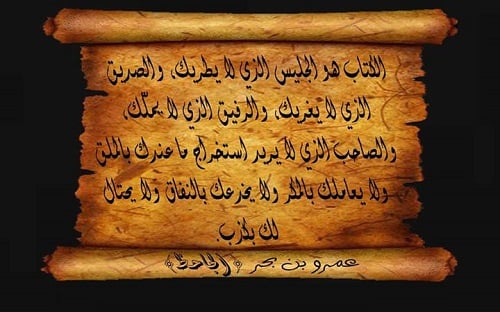 الكتاب هو الجليس الذي لا يطريك، والصديق
الذي لا يغريك، والرفيق الذي لا يملّك،
والصاحب الذي لا يريد استخراج ما عندك بالملق
ولا يعاملك بالمكر ولا يخدعك بالنفاق ولا يحتال
لك بكذب.
عمرو بن بحر ﴿الجاحظ﴾